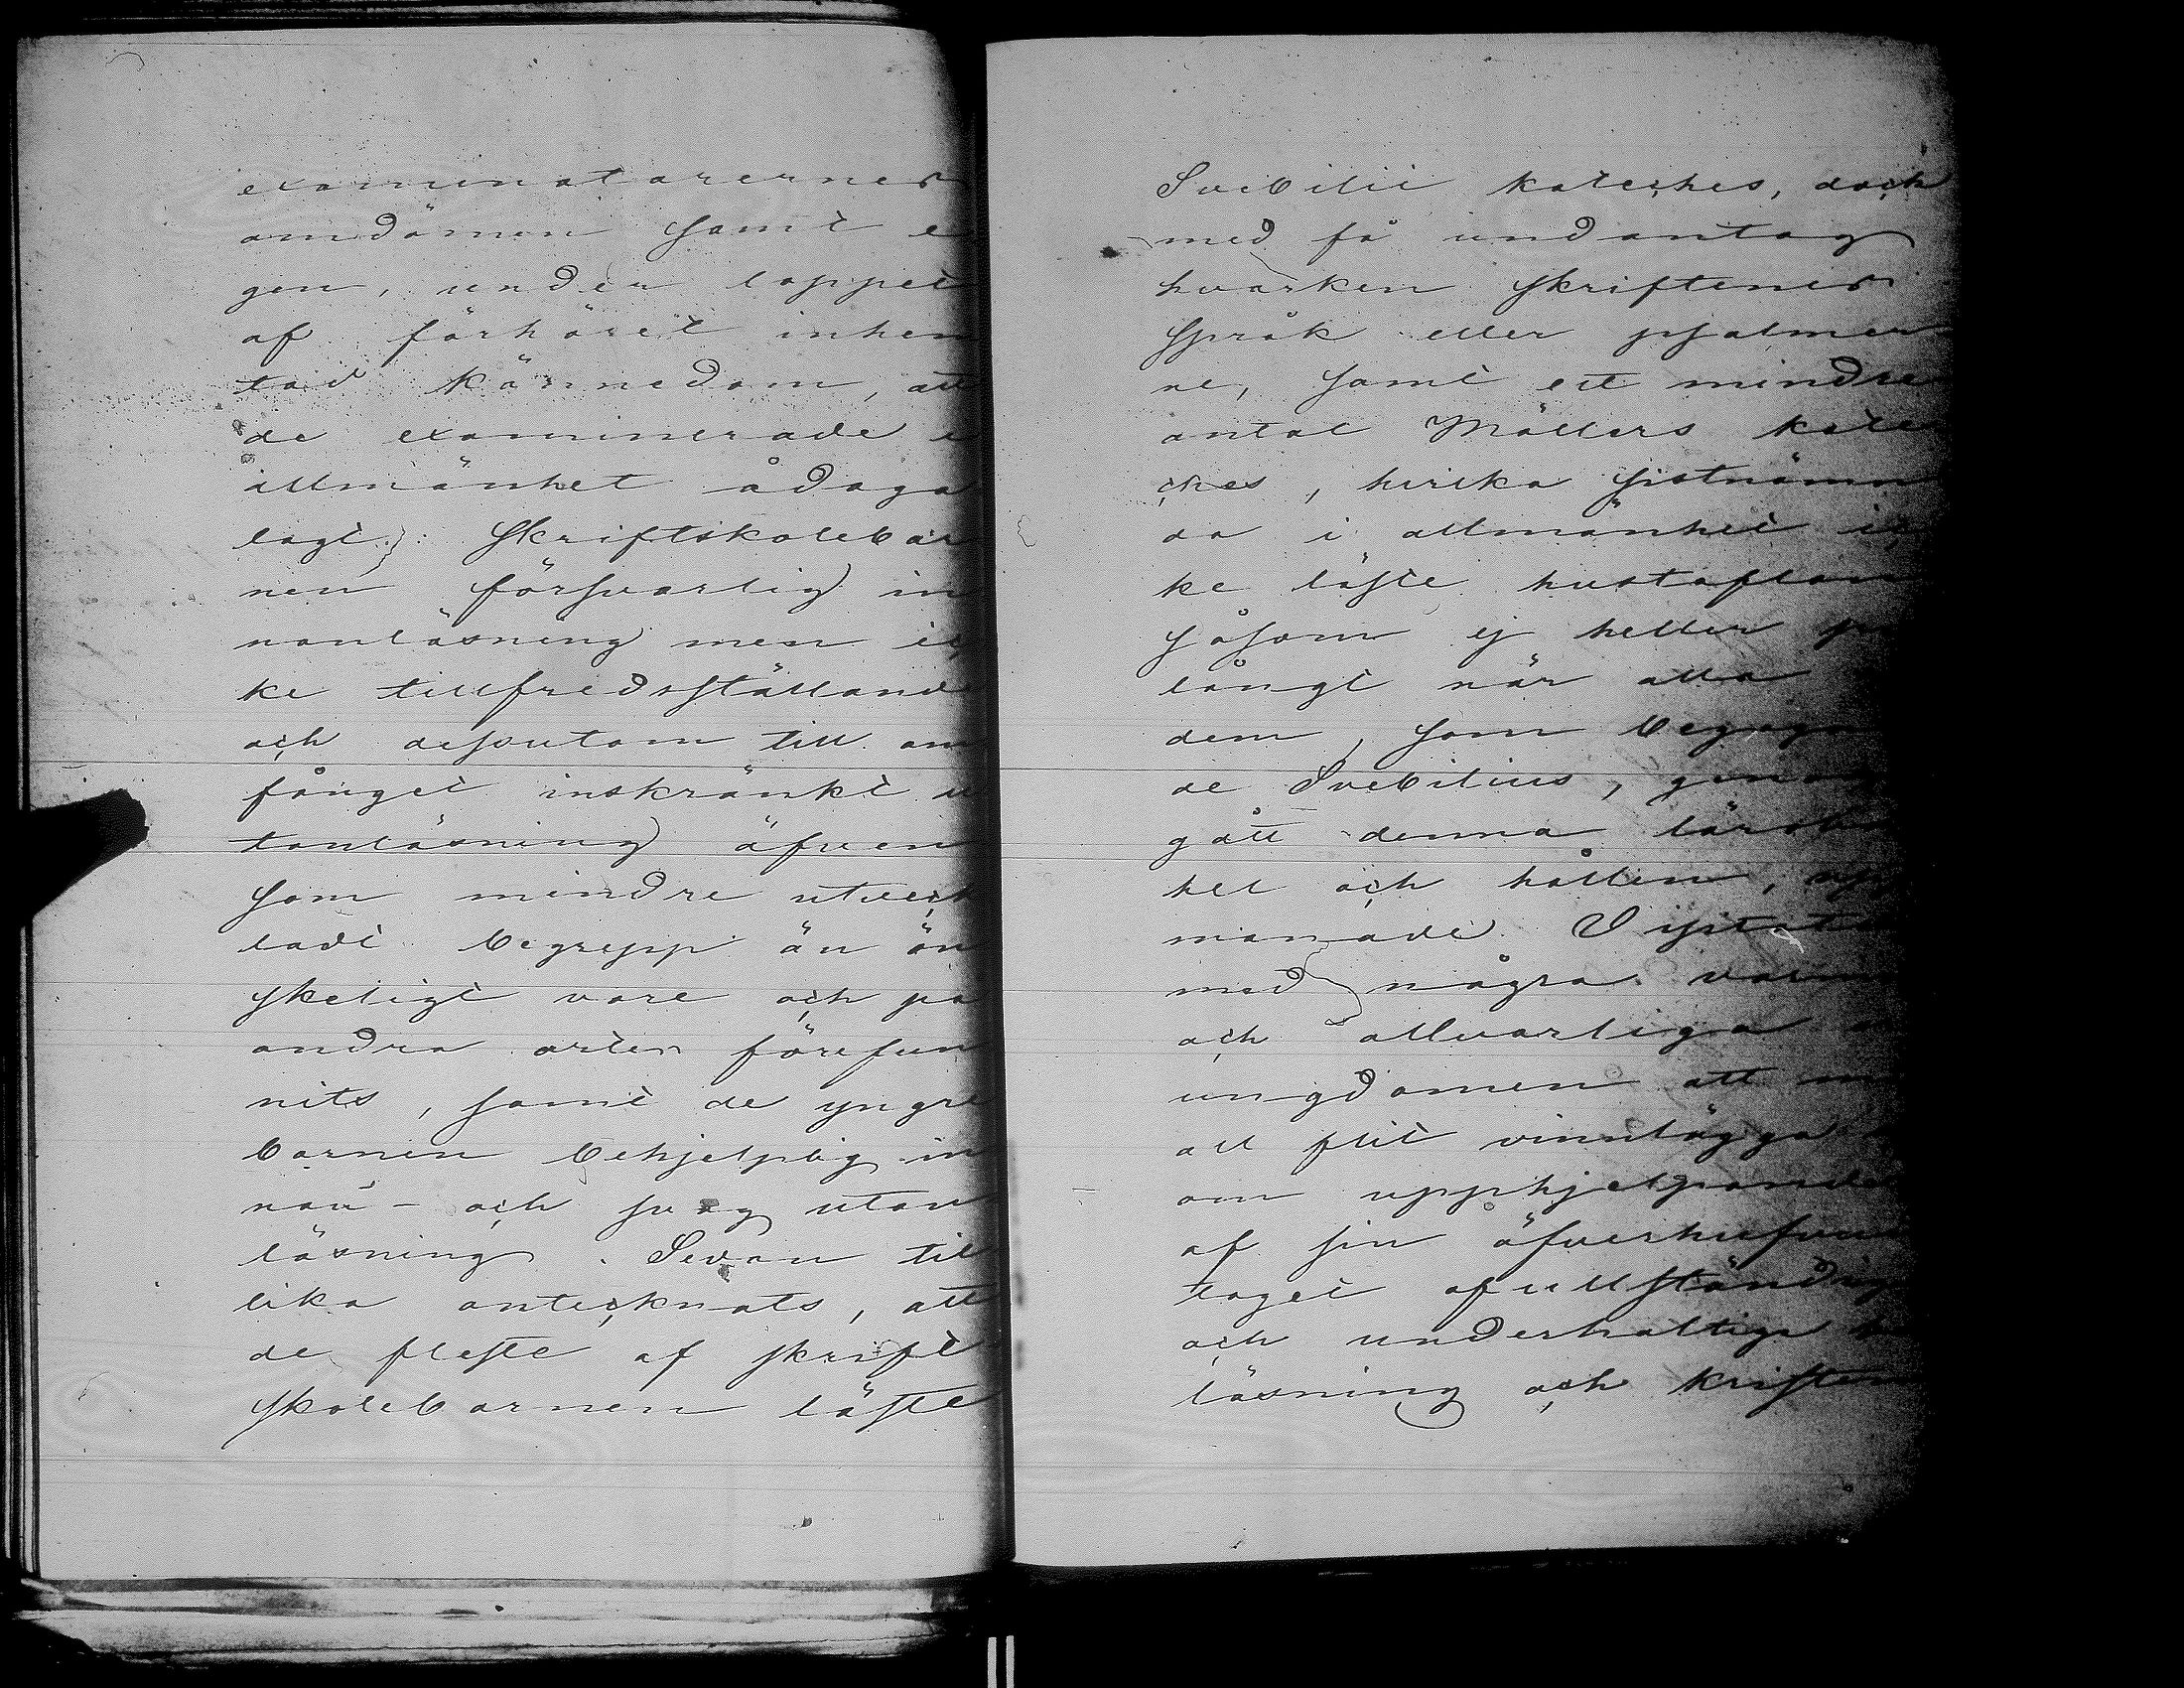 examinatorernes
omdömen samt e
gen, under loppet
af förhöret inhem
tad kännedom, att
de examinerade i
allmänhet ådaga
lagt: Skriftskolebar
nen försvarlig in
nanläsning men ic
ke tillfredsställande
och desutom till om
fånget inskränkt u
tanläsning äfven
som mindre utveck
ladt begrepp än ön
skeligt vore och på
andra orter förefun
nits, samt de yngre
barnen behjelplig in
nan- och svag utan
läsning. Sedan til
lika antecknats, att
de fleste af skrift
skolebarnen läste
Svebilii kateches, doch
med få undantag
hvarken skriftenes
språk eller psalmer
ne, samt ett mindre
antal Möllers kate
ches, hvilka sistnämn
da i allmänhet ic
ke läste hustaflan
såsom ej heller på
långt när alla
dem, som begagna
de Svebilius, genom
gått denna lärobok
hel och hållen, upp
manade Visitator
med några varma
och allvarliga
ungdomen att med
all flit vinnlägga
om upphjelpande
af sin öfverhufvud
taget ofullständiga
och underhaltiga
läsning och kristen